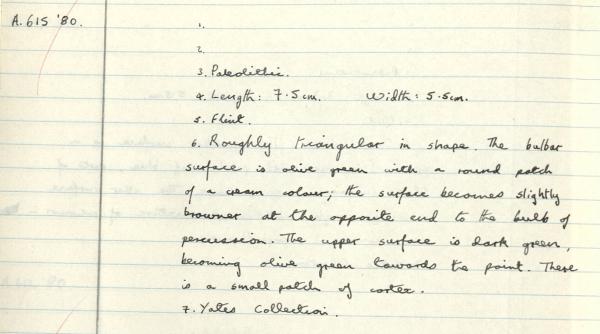 A.615 '80.
1.
2.
3. Paleolithic.
4. Length: 7.5cm. Width: 5.5cm.
5. Flint.
6. Roughly triangular in shape. The bulbar
surface is olive green with a round patch
of a cream colour; the surface becomes slightly
browner at the opposite end to the bulb of
percussion. The upper surface is dark green,
becoming olive green towards the point. There
is a small patch of cortex.
7. Yates Collection.